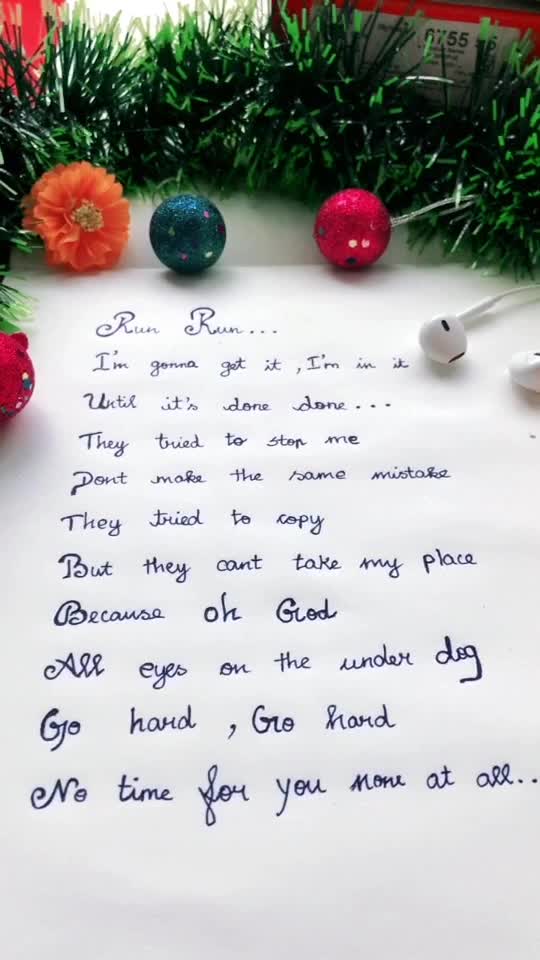 6755
Run Run...
I'm gonna get it , I'm in it
Until it's done done...
They tried to stop me
Dont make the same mistake
They tried to copy
But they cant take my place
Because oh God
All eyes on the under dog
Go hard , Go hard
No time for you none at all..